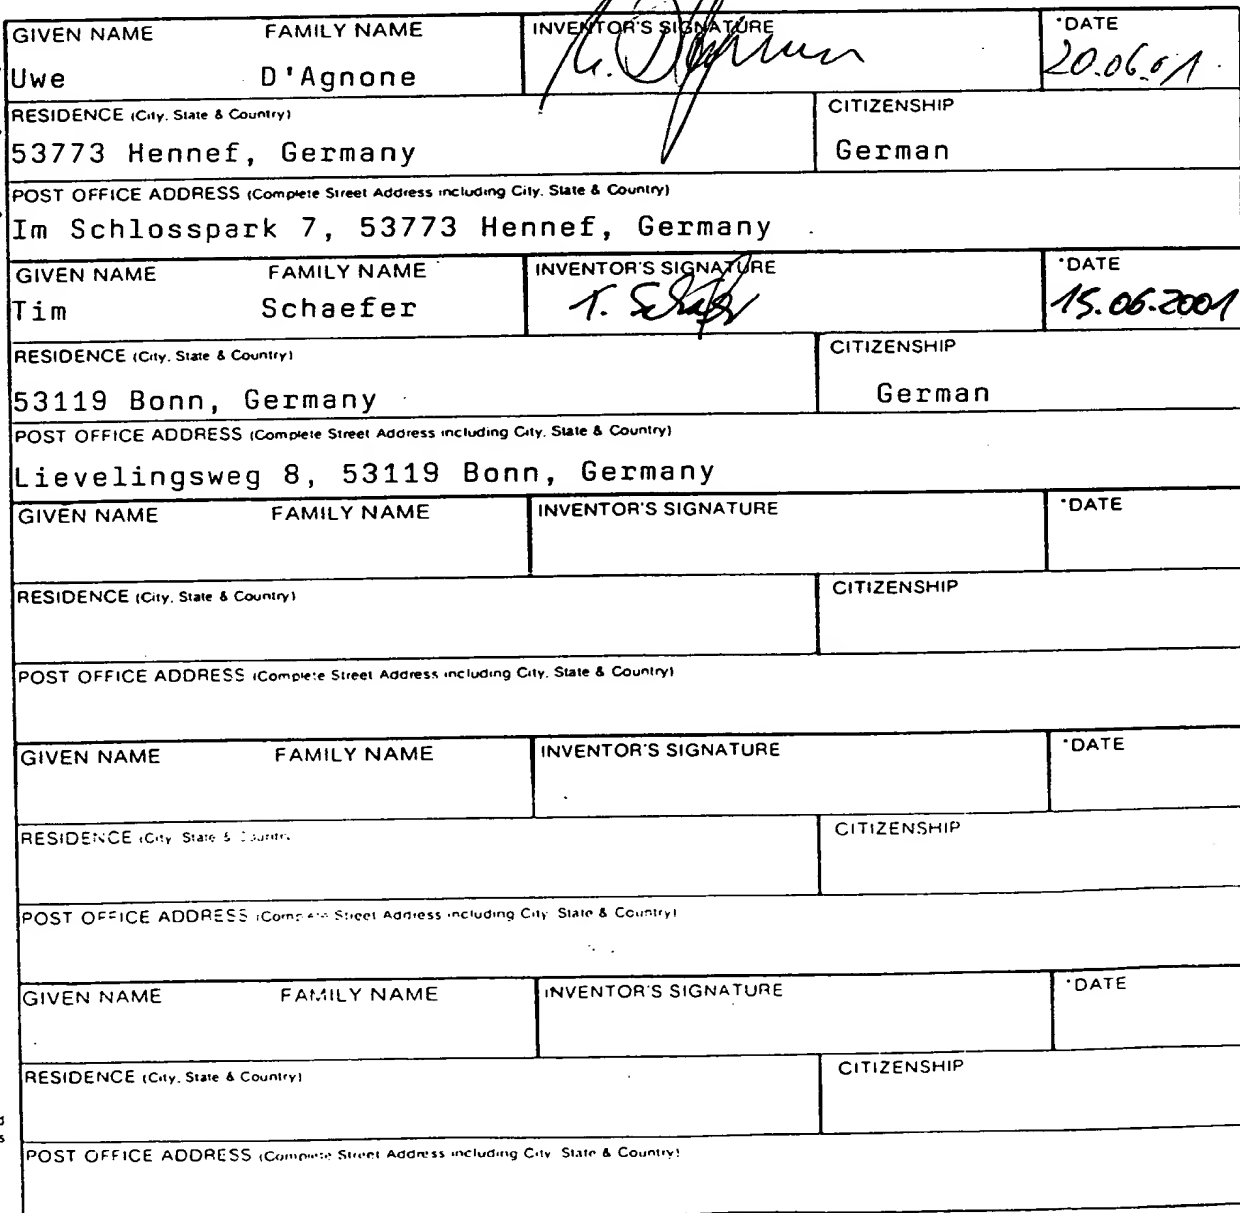 GIVEN NAME FAMILY NAME INVENTOR'S SIGNATURE *DATE
Uwe D'Agnone 20.06.01
RESIDENCE (City, State & Country) CITIZENSHIP
53773 Hennef, Germany German
POST OFFICE ADDRESS (Complete Street Address including City, State & Country)
Im Schlosspark 7, 53773 Hennef, Germany
GIVEN NAME FAMILY NAME INVENTOR'S SIGNATURE *DATE
Tim Schaefer T. Schäfer 15.06.2001
RESIDENCE (City, State & Country) CITIZENSHIP
53119 Bonn, Germany German
POST OFFICE ADDRESS (Complete Street Address including City, State & Country)
Lievelingsweg 8, 53119 Bonn, Germany
GIVEN NAME FAMILY NAME INVENTOR'S SIGNATURE *DATE
RESIDENCE (City, State & Country) CITIZENSHIP
POST OFFICE ADDRESS (Complete Street Address including City, State & Country)
GIVEN NAME FAMILY NAME INVENTOR'S SIGNATURE *DATE
RESIDENCE (City, State & Country) CITIZENSHIP
POST OFFICE ADDRESS (Complete Street Address including City, State & Country)
GIVEN NAME FAMILY NAME INVENTOR'S SIGNATURE *DATE
RESIDENCE (City, State & Country) CITIZENSHIP
POST OFFICE ADDRESS (Complete Street Address including City, State & Country)